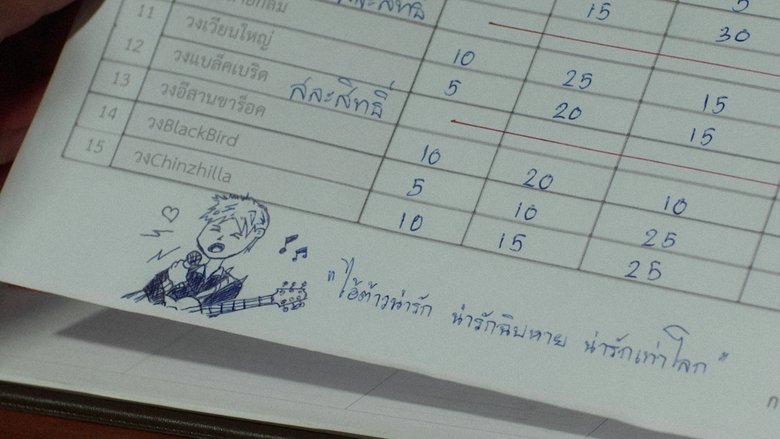 5
15 30
สละสิทธิ์
10 25 15
11 วงเวียนใหญ่ 5 20 15
12 วงแบล็คเบริด สละสิทธิ์
13 วงอีสานขาร็อค 10 20 10
14 วงBlackBird 5 10 25
15 วงChinzhilla 10 15 25
"ไอ้ต้าวน่ารัก น่ารักฉิบหาย น่ารักเท่าโลก"